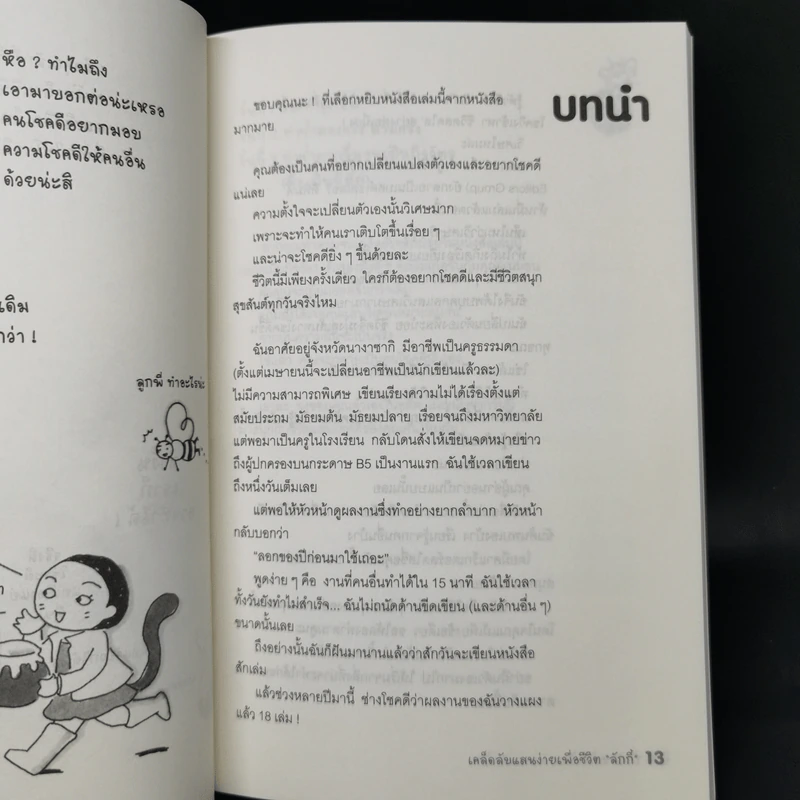 หือ ? ทำไมถึง
เอามาบอกต่อน่ะเหรอ
คนโชคดีอยากมอบ
ความโชคดีให้คนอื่น
ด้วยน่ะสิ
เดิม
กว่า !
ลูกพี่ ทำอะไรน่ะ
บทนำ
ขอบคุณนะ ! ที่เลือกหยิบหนังสือเล่มนี้จากหนังสือ
มากมาย
คุณต้องเป็นคนที่อยากเปลี่ยนแปลงตัวเองและอยากโชคดี
แน่เลย
ความตั้งใจจะเปลี่ยนตัวเองนั้นวิเศษมาก
เพราะจะทำให้คนเราเติบโตขึ้นเรื่อย ๆ
และน่าจะโชคดียิ่ง ๆ ขึ้นด้วยละ
ชีวิตนี้มีเพียงครั้งเดียว ใครก็ต้องอยากโชคดีและมีชีวิตสนุก
สุขสันต์ทุกวันจริงไหม
ฉันอาศัยอยู่จังหวัดนางาซากิ มีอาชีพเป็นครูธรรมดา
(ตั้งแต่เมษายนนี้จะเปลี่ยนอาชีพเป็นนักเขียนแล้วละ)
ไม่มีความสามารถพิเศษ เขียนเรียงความไม่ได้เรื่องตั้งแต่
สมัยประถม มัธยมต้น มัธยมปลาย เรื่อยจนถึงมหาวิทยาลัย
แต่พอมาเป็นครูในโรงเรียน กลับโดนสั่งให้เขียนจดหมายข่าว
ถึงผู้ปกครองบนกระดาษ B5 เป็นงานแรก ฉันใช้เวลาเขียน
ถึงหนึ่งวันเต็มเลย
แต่พอให้หัวหน้าดูผลงานซึ่งทำอย่างยากลำบาก หัวหน้า
กลับบอกว่า
"ลอกของปีก่อนมาใช้เถอะ"
พูดง่าย ๆ คือ งานที่คนอื่นทำได้ใน 15 นาที ฉันใช้เวลา
ทั้งวันยังทำไม่สำเร็จ... ฉันไม่ถนัดด้านขีดเขียน (และด้านอื่น ๆ)
ขนาดนั้นเลย
ถึงอย่างนั้นฉันก็ฝันมานานแล้วว่าสักวันจะเขียนหนังสือ
สักเล่ม
แล้วช่วงหลายปีมานี้ ช่างโชคดีว่าผลงานของฉันวางแผง
แล้ว 18 เล่ม !
เคล็ดลับแสนง่ายเพื่อชีวิต "ลักกี้" 13